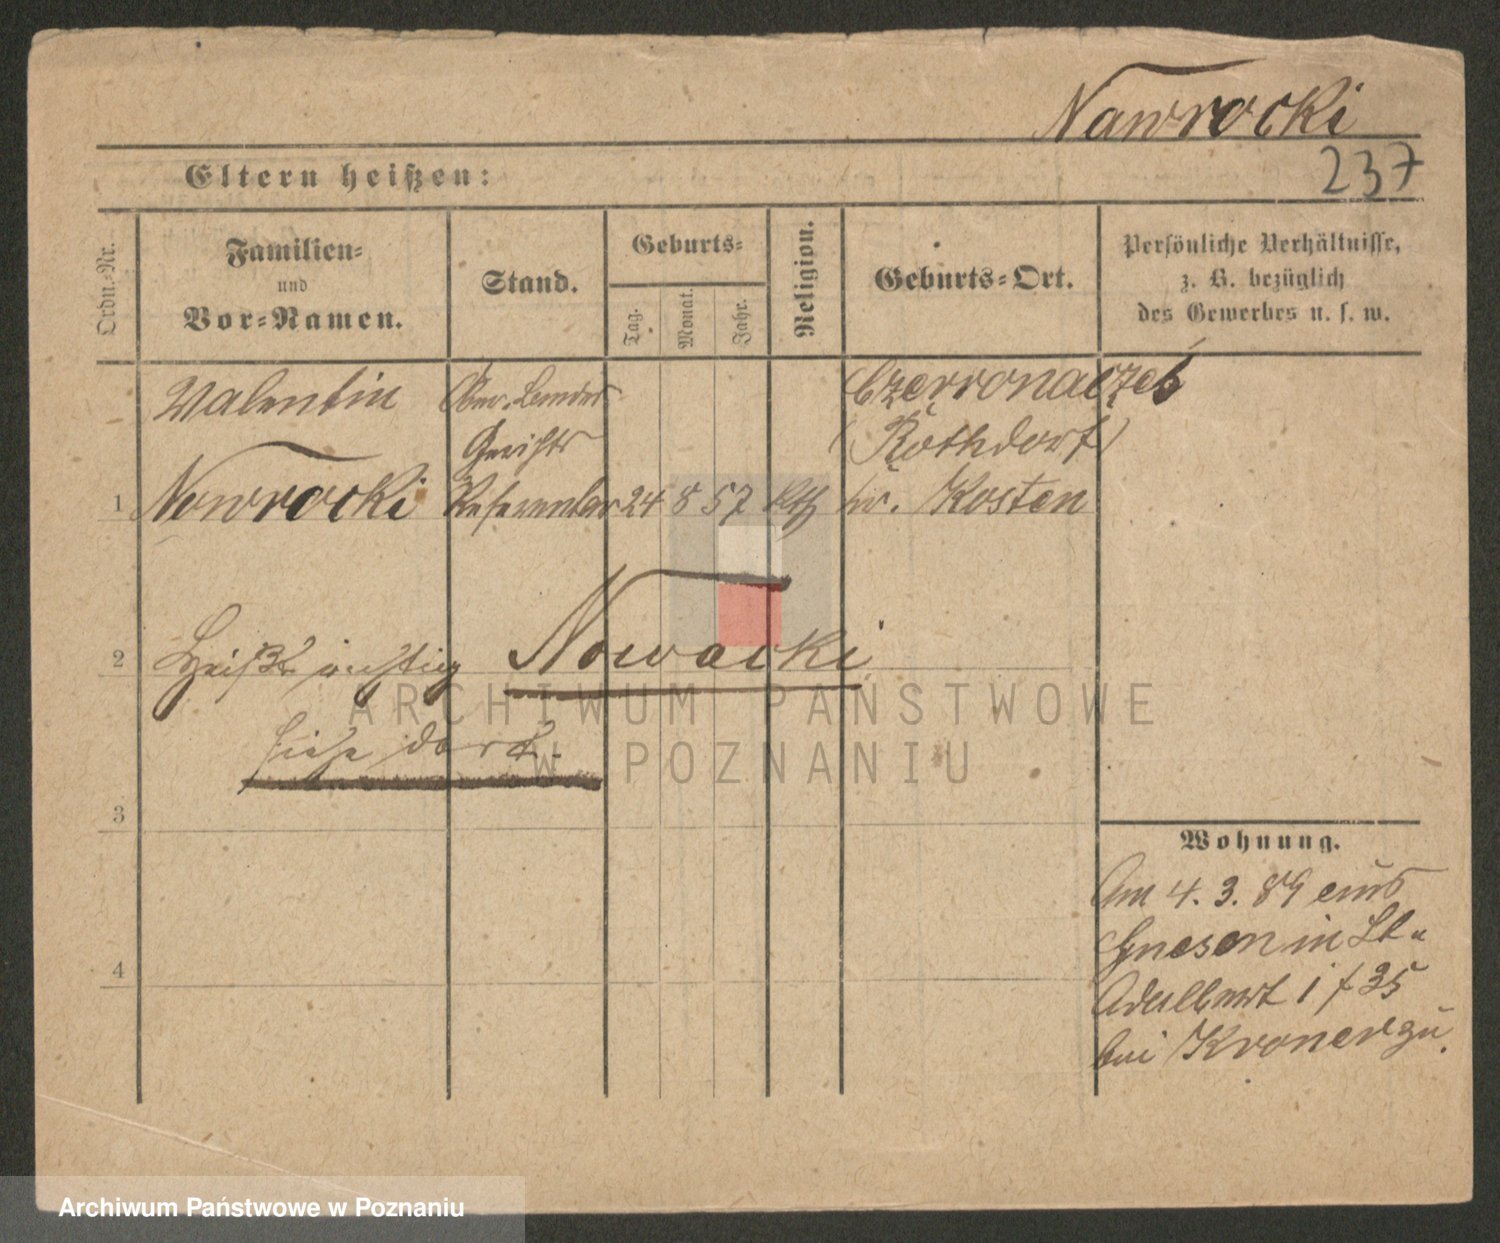 Nawrocki
237
Eltern heißen:
Ordn.-Nr.
Familien-
und
Vor-Namen.
Stand.
Geburts-
Tag.
Monat.
Jahr.
Religion.
Geburts-Ort.
Persönliche Verhältnisse,
z. B. bezüglich
des Gewerbes u. s. w.
Valentin Ober-Landes
Gerichts (Rothdorf)
1 Nowrocki Referendar 24 8 57 kth Kr. Kosten
2 Heißt richtig Nowacki
siehe dort.
3
Wohnung.
Am 4. 3. 89 aus
Gnesen in St.
4
Adalbert 1 f 35
bei Kroner zu.
ARCHIWUM PAŃSTWOWE
W POZNANIU
Archiwum Państwowe w Poznaniu